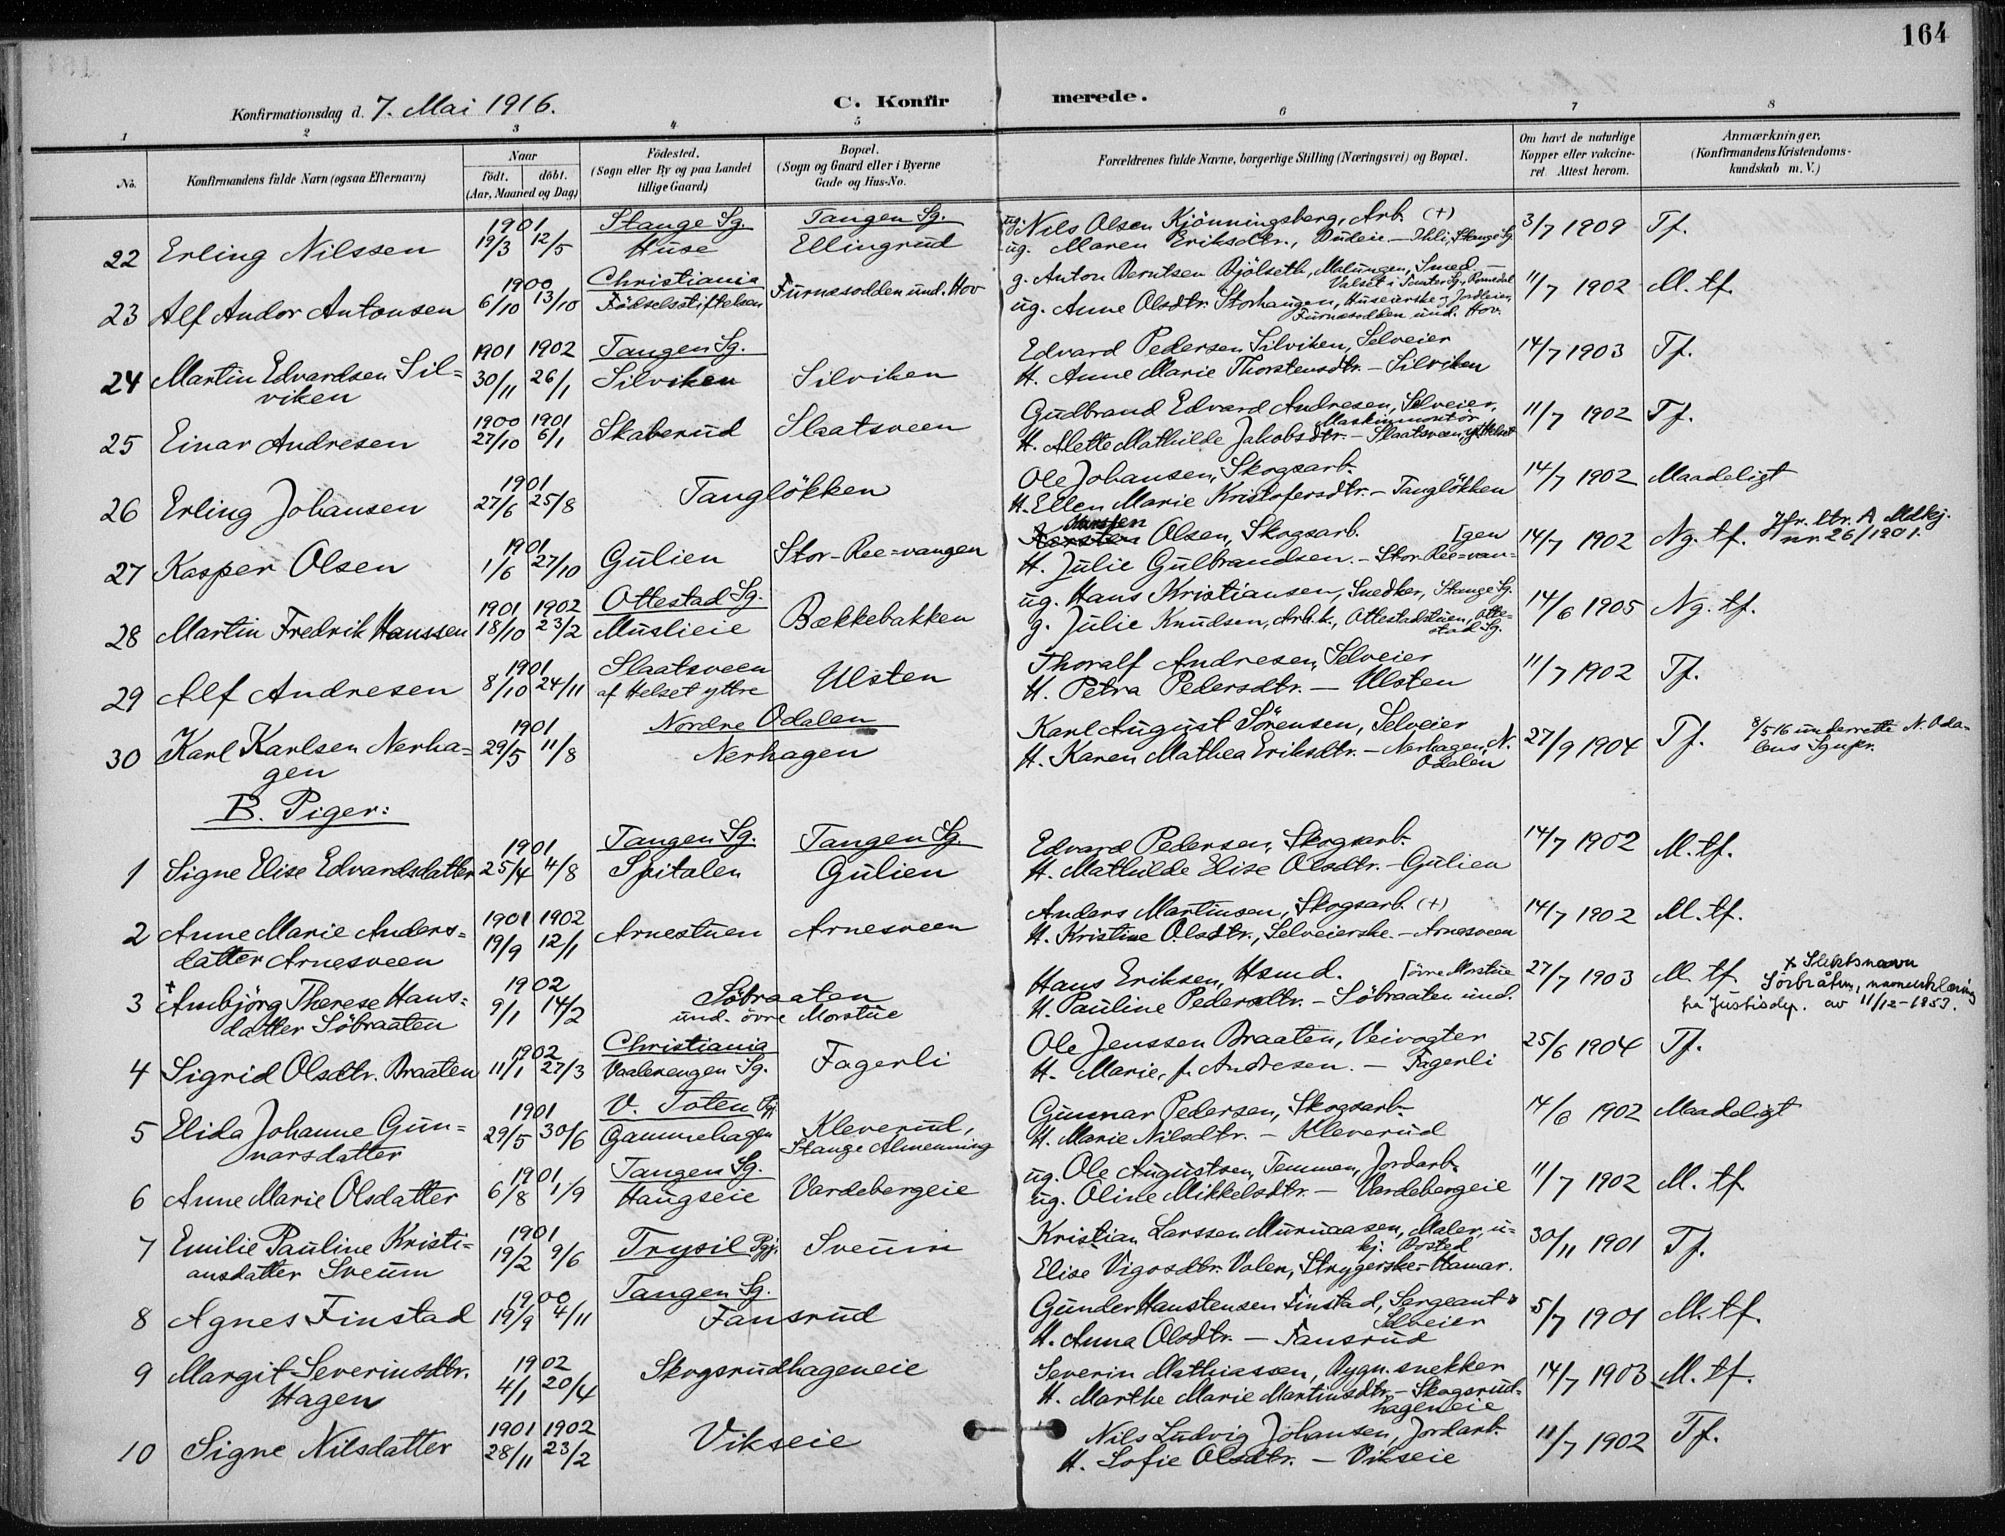 164
Konfirmationsdag d. 7. Mai 1916.
C. Konfirmerede.
1 2 3 4 5 6 7 8
No.
Konfirmandens fulde Navn (ogsaa Efternavn)
Naar
födt. döbt.
(Aar, Maaned og Dag)
Födested.
(Sogn eller By og paa Landet
tillige Gaard)
Bopæl.
(Sogn og Gaard eller i Byerne
Gade og Hus-No.
Forældrenes fulde Navne, borgerlige Stilling (Næringsvei) og Bopæl.
Om havt de naturlige
Kopper eller vakcine-
ret Attest herom.
Anmærkninger.
(Konfirmandens Kristendoms-
kundskab m. V.)
22 Erling Nilssen 1901 19/3 12/5 Stange Sg. Huse Tangen Sg. Ellingrud
ug. Nils Olsen Kjönningsberg, Arb. (+)
ug. Maren Eriksdtr., Budeie – Ihli, Stange Sg.
3/7 1909 Tf.
23 Alf Andor Antonsen 1900 6/10 13/10 Christiania Födselsstiftelsen Furnæsodden und. Hov
g. Anton Berntsen Bjölseth, Malungen, Smed –
Valset i Tomter Sg., Romedal
ug. Anne Olsdtr. Storhaugen, Huseierske og Jordleier,
Furnæsodden und. Hov.
11/7 1902 M. tf.
24 Martin Edvardsen Sil-
viken 1901 1902 30/11 26/1 Tangen Sg. Silviken Silviken
Edvard Pedersen Silviken, Selveier
H. Anne Marie Thorstensdtr. – Silviken
14/7 1903 Tf.
25 Einar Andresen 1900 1901 27/10 6/1 Skaberud Slaatsveen
Gudbrand Edvard Andresen, Selveier,
Maskinmontör
H. Alette Mathilde Jakobsdtr. – Slaatsveen, yt. Helset
11/7 1902 Tf.
26 Erling Johansen 1901 27/6 25/8 Tanglökken
Ole Johansen, Skogsarb.
H. Ellen Marie Kristofersdtr. – Tanglökken
14/7 1902 Maadeligt
27 Kasper Olsen 1901 1/6 27/10 Gulien Stor-Ree=vangen
Olsen, Skogsarb. [gen
H. Julie Gulbrandsen. – Stor-Ree=van-
14/7 1902 Ng. tf. Jfr. ltr. A Mdkj.
nr. 26/1901.
28 Martin Fredrik Hanssen 1901 1902 18/10 23/2 Ottestad Sg. Muslieie Bækkebakken
ug. Hans Kristiansen, Snedker, Stange Sg.
g. Julie Knudsen, Arb.k., Ottestadstuen, Otte-
stad Sg.
14/6 1905 Ng. tf.
29 Alf Andresen 1901 8/10 24/11 Slaatsveen af Helset yttre Ulsten
Thoralf Andresen, Selveier
H. Petra Pedersdtr. – Ulsten
11/7 1902 Tf.
30 Karl Karlsen Nerha-
gen 1901 29/5 11/8 Nordre Odalen Nerhagen
Karl August Sörensen, Selveier
H. Karen Mathea Eriksdtr. – Nerhagen, N.
Odalen
27/9 1904 Tf. 8/5 16 underrette N. Oda-
lens Sgnpr.
B. Piger:
1 Signe Elise Edvardsdatter 1901 25/4 4/8 Tangen Sg. Spitalen Tangen Sg. Gulien
Edvard Pedersen, Skogsarb.
H. Mathilde Elise Olsdtr. – Gulien
14/7 1902 M. tf.
2 Anne Marie Anders-
datter Arnesveen 1901 1902 19/9 12/1 Arnestuen Arnesveen
Anders Martinsen, Skogsarb. (+)
H. Kristine Olsdtr., Selveierske. – Arnesveen
14/7 1902 M. tf.
3 + Ambjörg Therese Hans-
datter Söbraaten 1902 9/1 14/2 Söbraaten
und. övre Morstue
Hans Eriksen, Hsmd. [övre Morstue
H. Pauline Pedersdtr. – Söbraaten und.
27/7 1903 M. tf. + Slektsnavn
Sörbråten, navneerklæring
fra Justisdep. av 11/12-1953.
4 Sigrid Olsdtr. Braaten 1902 11/1 27/3 Christiania Vaalerengen Sg. Fagerli
Ole Jenssen Braaten, Veivogter
H. Marie, f. Andresen. – Fagerli
25/6 1904 Tf.
5 Elida Johanne Gun-
narsdatter 1901 29/5 30/6 V. Toten Pgj. Gammehagen Kleverud,
Stange Almenning
Gunnar Pedersen, Skogsarb.
H. Marie Nilsdtr. – Kleverud
14/6 1902 Maadeligt
6 Anne Marie Olsdatter 1901 6/8 1/9 Tangen Sg. Haugseie Vardebergeie
ug. Ole Augustsen, Temmen, Jordarb.
ug. Oline Mikkelsdtr. – Vardebergeie
11/7 1902 M. tf.
7 Emilie Pauline Kristi-
ansdatter Sveum 1901 19/2 9/6 Trysil Pgj. Sveum
Kristian Larssen Muruaasen, Maler, u-
kj. Bosted
Elise Vigosdtr. Volen, Strygerske – Hamar.
30/11 1901 Tf.
8 Agnes Finstad 1900 19/9 4/11 Tangen Sg. Fansrud
Gunder Haustensen Finstad, Sergeant &
Selveier
H. Anna Olsdtr. – Fansrud
5/7 1901 M. tf.
9 Margit Severinsdtr.
Hagen 1902 4/1 20/4 Skogsrudhageneie
Severin Mathiassen, Bygn. snekker
H. Marthe Marie Martinsdtr. – Skogsrud-
hageneie
14/7 1903 M. tf.
10 Signe Nilsdatter 1901 1902 28/11 23/2 Vikseie
Nils Ludvig Johansen, Jordarb.
H. Sofie Olsdtr. – Vikseie
11/7 1902 Tf.